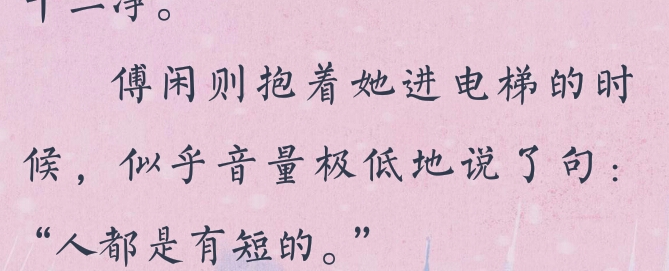 干二净。
傅闲则抱着她进电梯的时
候，似乎音量极低地说了句：
“人都是有短的。”